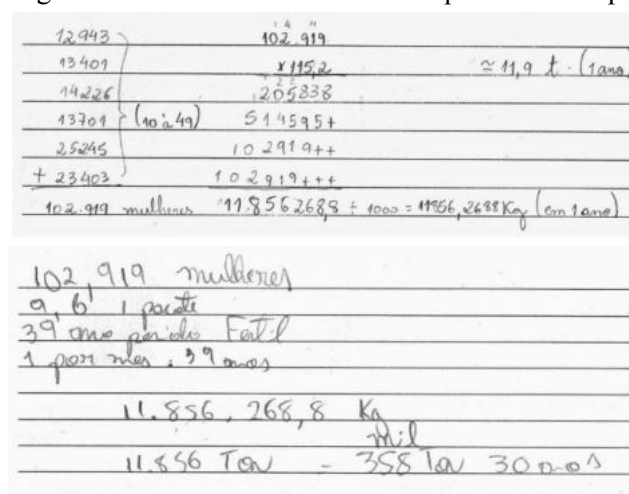 12943
13401
14226
13701 (10 à 49)
25245
+ 23403
102.919 mulheres
102.919
x 115,2
205838
514595+
102919++
102919+++
11.856268,8 ÷ 1000 = 11856,2688 Kg (em 1 ano)
≃ 11,9 t. (1 ano
102,919 mulheres
9,6 1 pacote
39 ano periodo Fertil
1 por mes . 39 anos
11.856.268,8 Kg
11.856 Ton = 358 mil Ton 30 anos